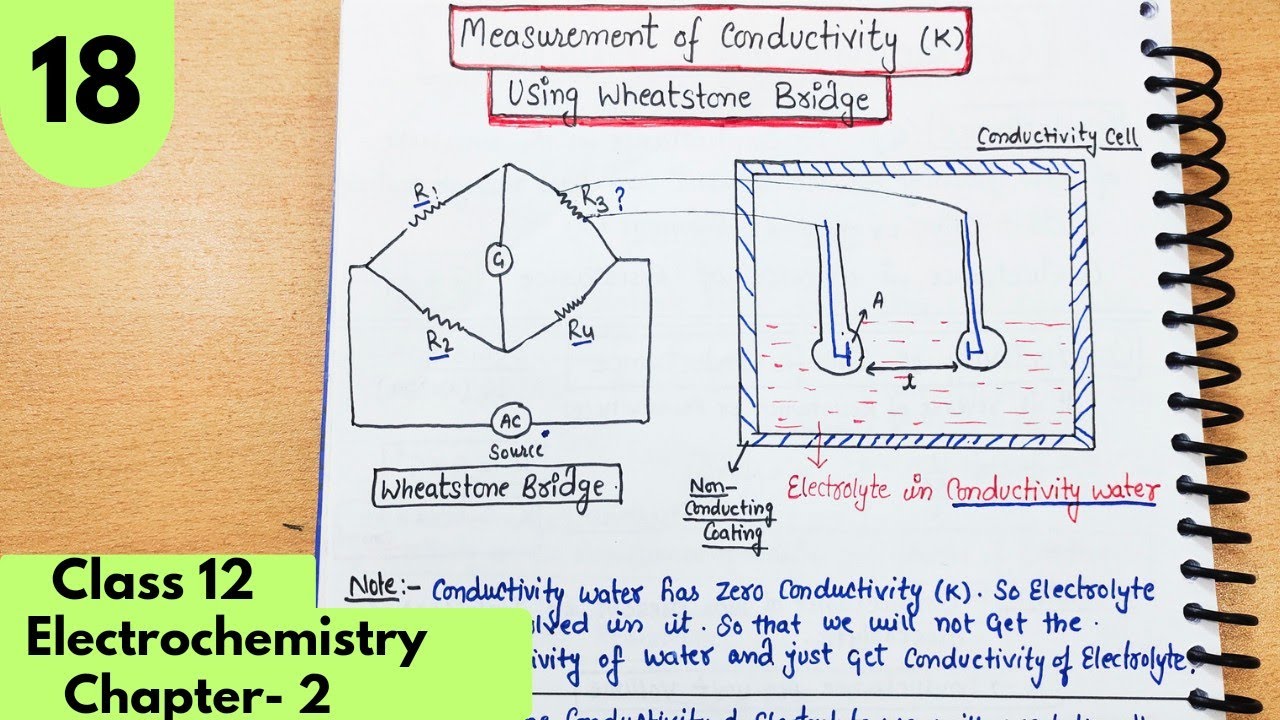 18
Measurement of Conductivity (K)
Using Wheatstone Bridge
Conductivity Cell
R1
R3?
G
R2
R4
A
l
AC
Source
Wheatstone Bridge.
Non-
Conducting
Coating
Electrolyte in Conductivity water
Note:- Conductivity water has zero Conductivity (K). So Electrolyte
olved in it. So that we will not Get the.
ivity of water and just get Conductivity of Electrolyte.
Class 12
Electrochemistry
Chapter- 2